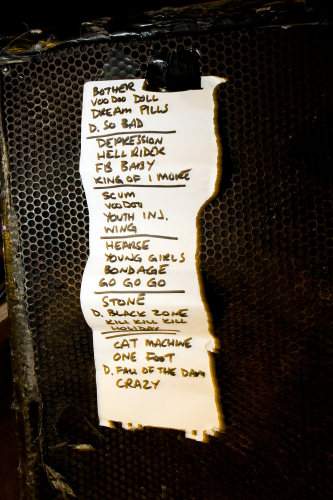 BOTHER
VOODOO DOLL
DREAM PILLS
D. SO BAD
DEPRESSION
HELLRIDER
FB BABY
KING OF 1 MORE
SCUM
VOODOO
YOUTH INJ.
WING
HEARSE
YOUNG GIRLS
BONDAGE
GO GO GO
STONE
D. BLACK ZONE
KILL KILL KILL
HOLIDAY
CAT MACHINE
ONE FOOT
D. FALL OF THE DAM
CRAZY